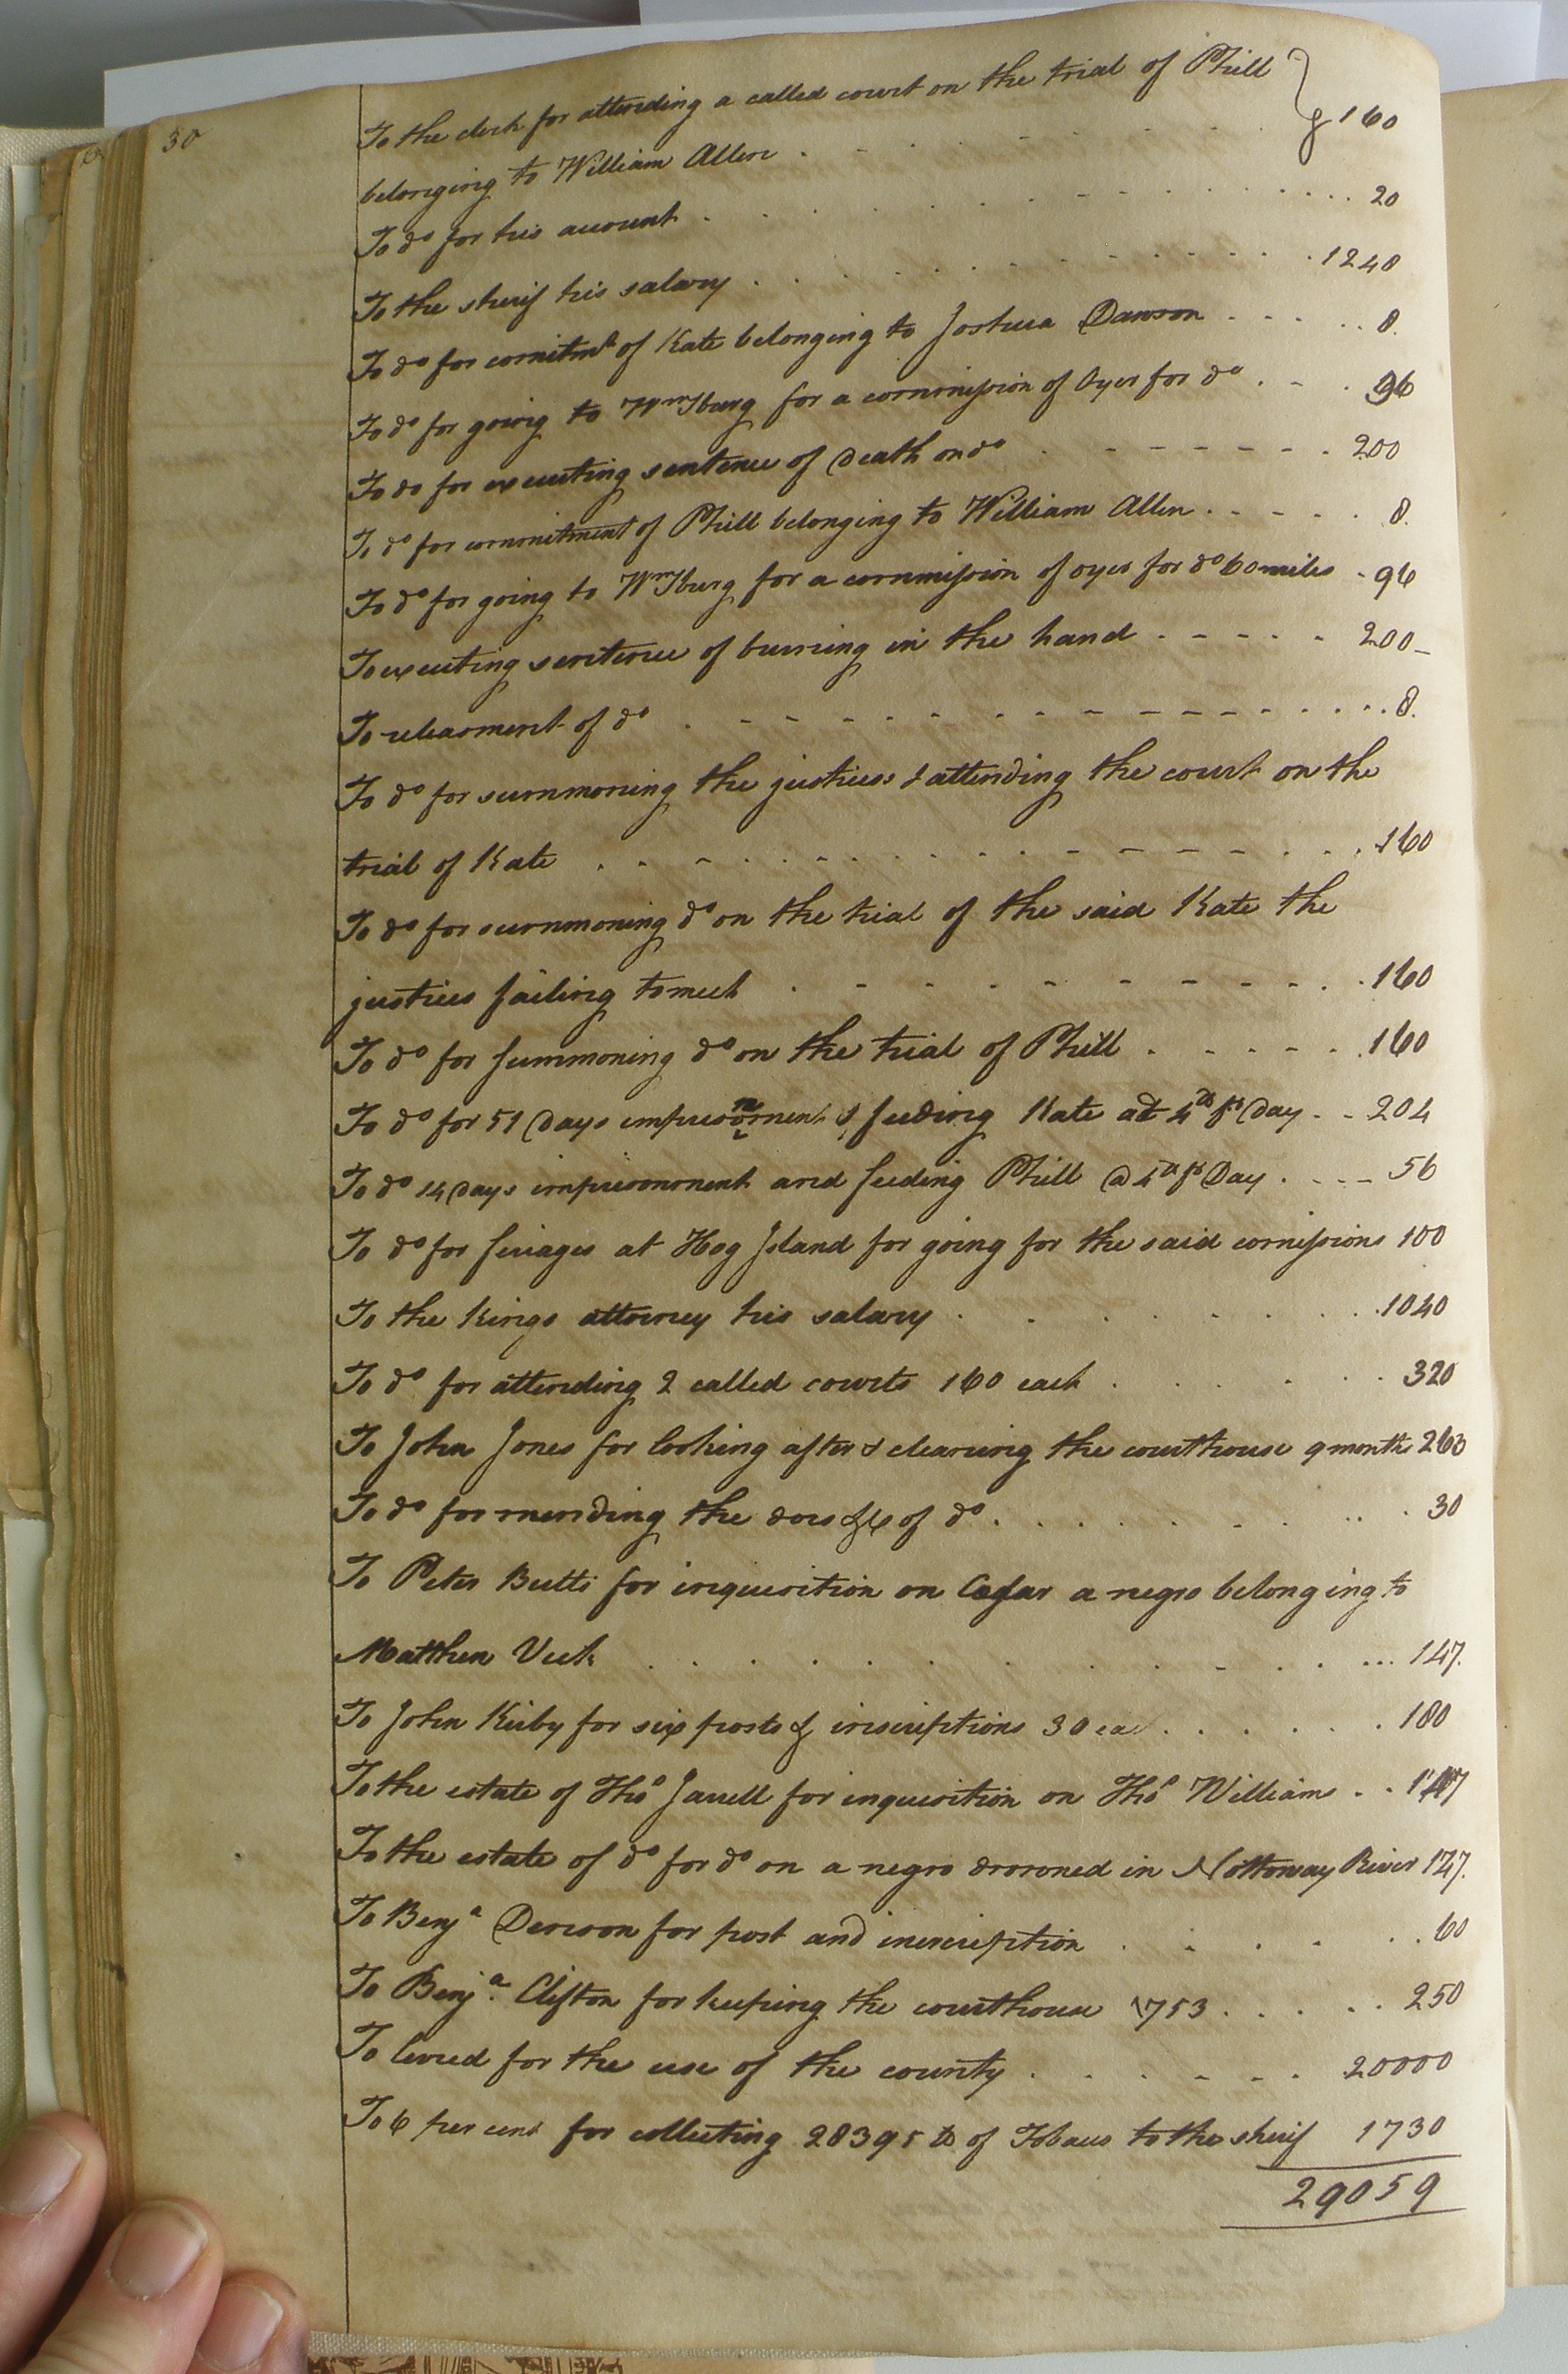 30
To the clerk for attending a called court on the trial of Phill
belonging to William Allen . . . . . 160
To do for his account . . . . . 20
To the sherif his salary . . . . . 1240
To do for comitmt of Kate belonging to Joshua Dawson . . . . . 8.
To do for going to Wmsburg for a commission of Oyer for do . . . 96
To do for executing sentence of Death on do . . . . . 200
To do for commitment of Phill belonging to William Allen . . . . . 8.
To do for going to Wmsburg for a commission of oyer for do 60 miles - 96
To executing sentence of burning in the hand . . . . . 200
To releasment of do . . . . . 8.
To do for summoning the justices & attending the court on the
trial of Kate . . . . . 160
To do for summoning do on the trial of the said Kate the
justices failing to meet . . . . . 160
To do for summoning do on the trial of Phill . . . . . 160
To do for 51 Days imprisonment & feeding Kate at 4 lb pr Day . . 204
To do 14 Days imprisonment and feeding Phill @ 4 lb pr Day . . . . 56
To do for feriages at Hog Island for going for the said comissions 100
To the Kings attorney his salary . . . . . 1040
To do for attending 2 called courts 160 each . . . . . 320
To John Jones for looking after & cleaning the courthouse 9 months
To do for mending the dors &c of do . . . . . 30
To Peter Butts for inquisition on Cæsar a negro belonging to
Matthew Vick . . . . . 147.
To John Kirby for six posts & inscriptions 30 ea . . . . . 180
To the estate of Thos Jarrell for inquisition on Thos Williams . . 147
To the estate of do for do on a negro drowned in Nottoway River 147.
To Benja Denson for post and inscription . . . . . 60
To Benja. Clifton for keeping the courthouse 1753 . . . . . 250
To levied for the use of the county . . . . . 20000
To 6 per cent for collecting 28395 lb of Tobacco to the sherif 1730
29059